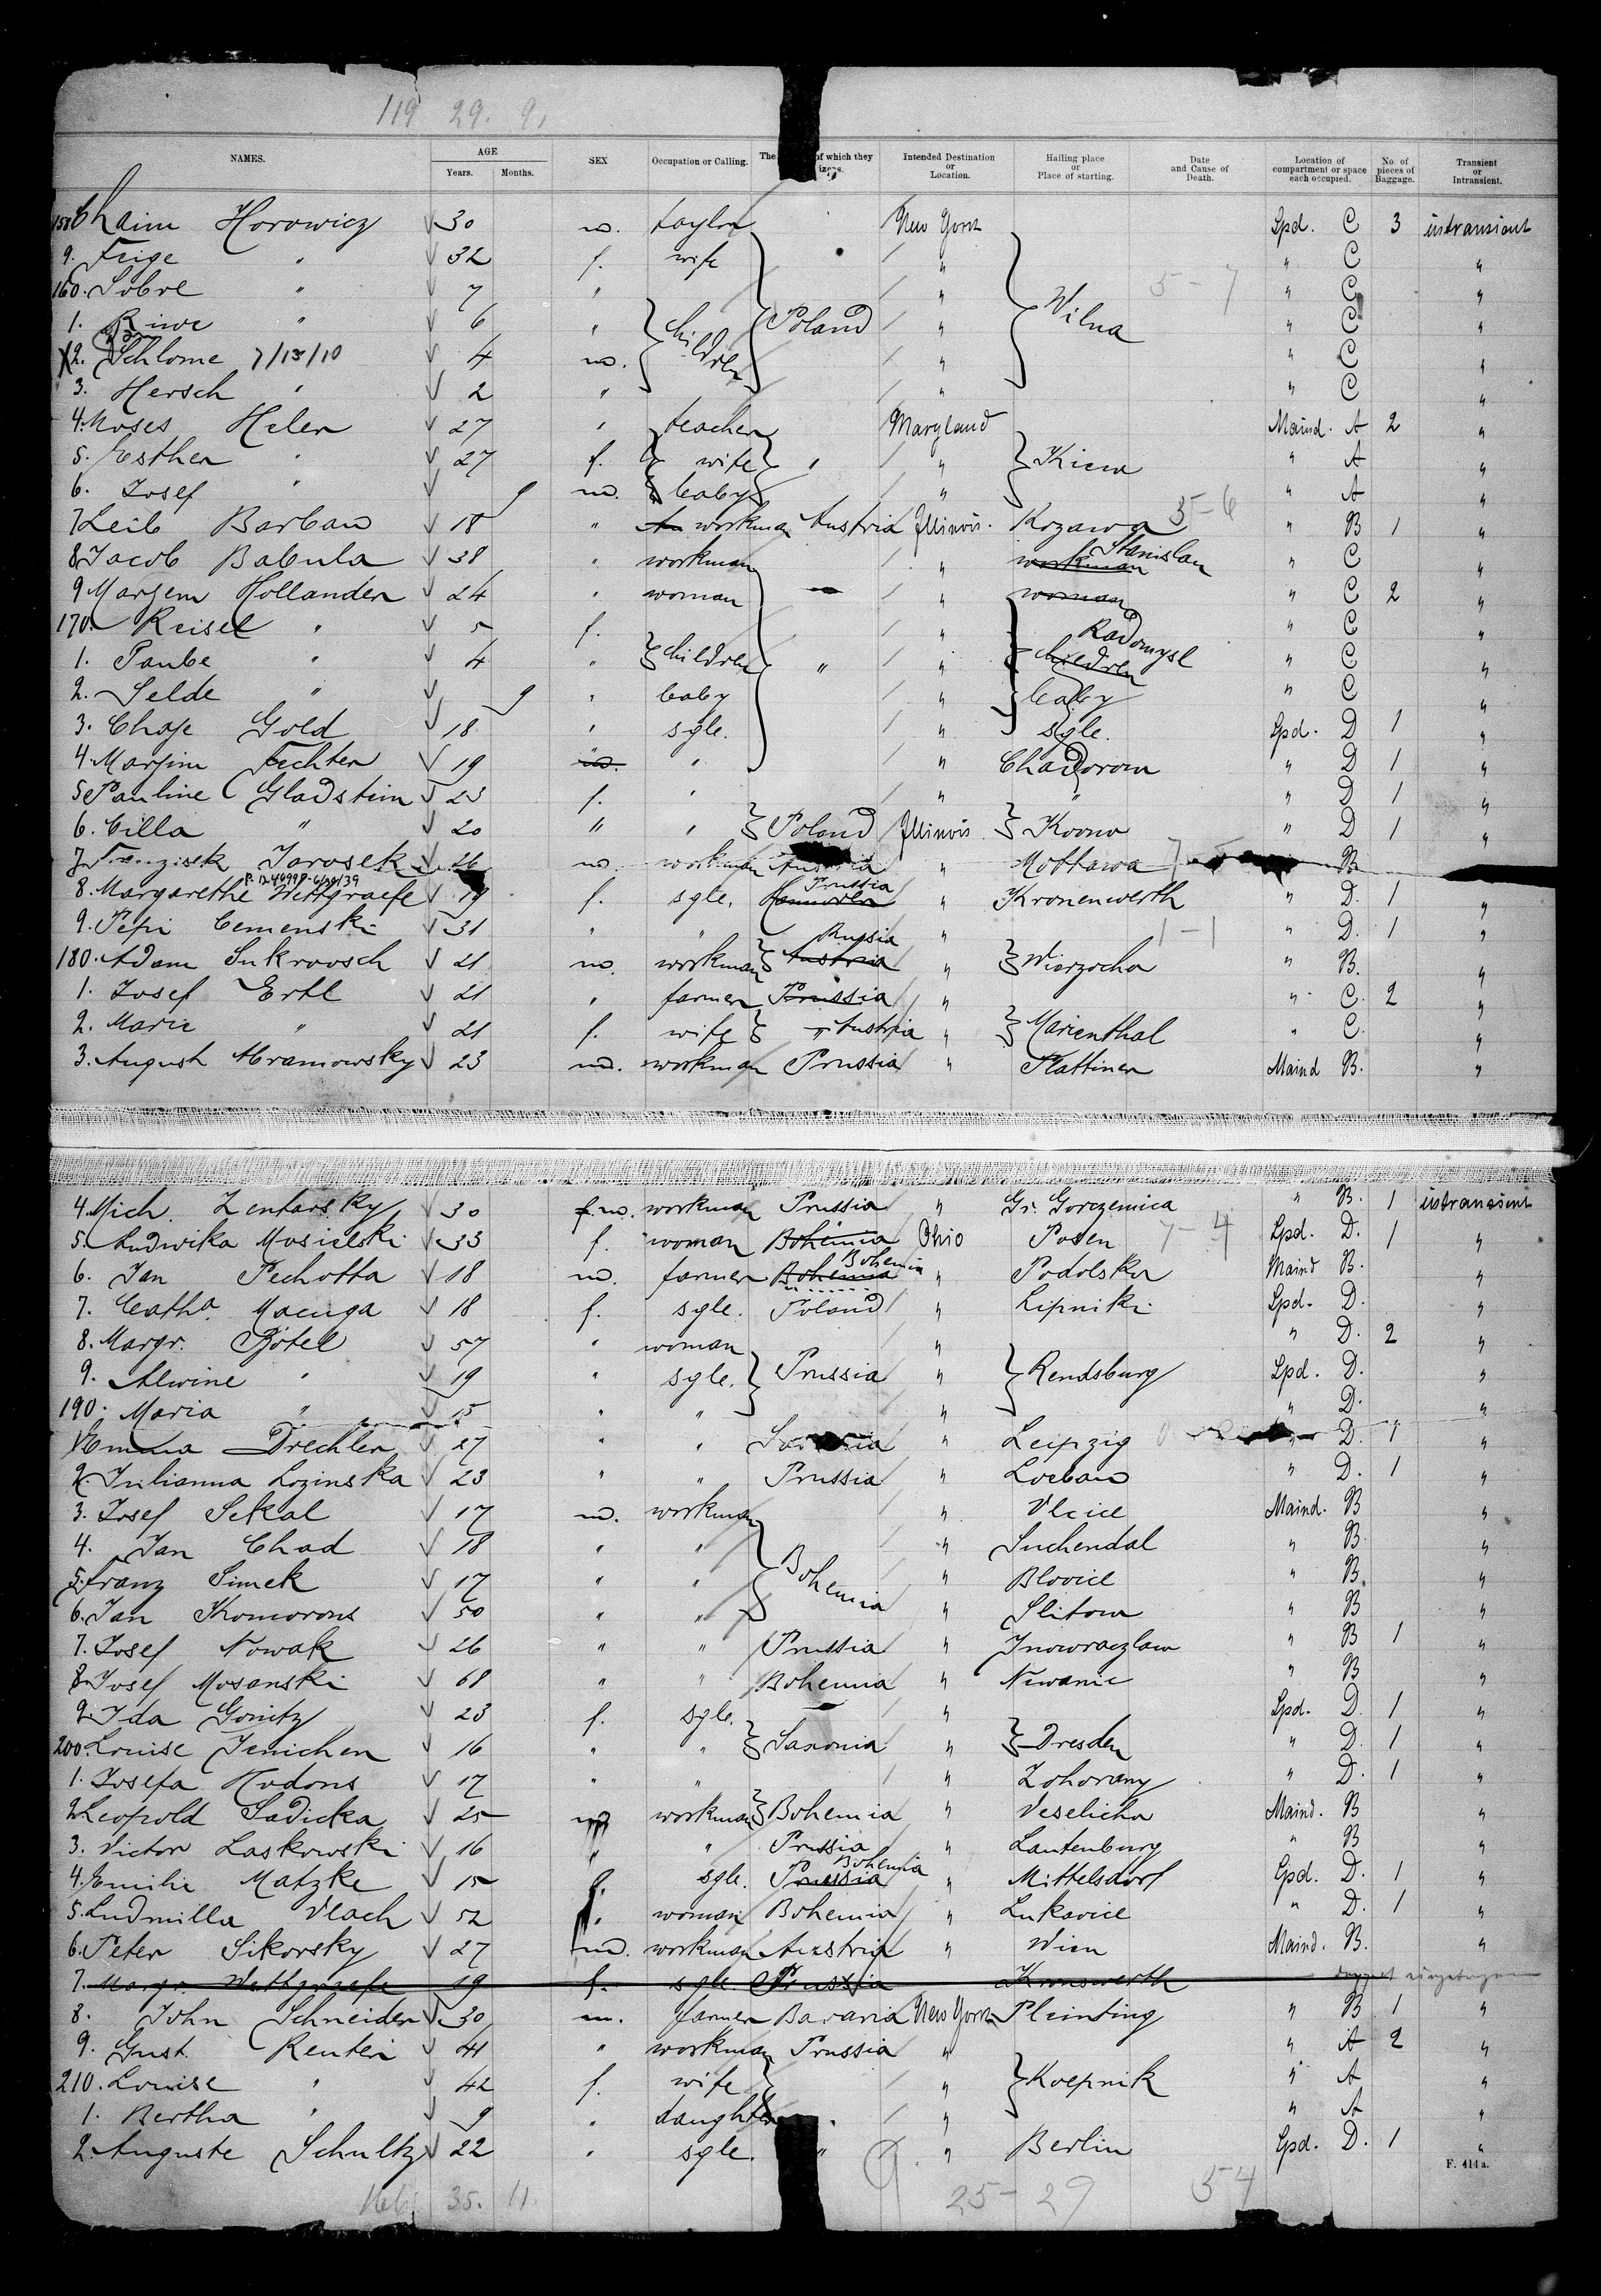 119 29. 9.
NAMES. AGE Years. Months. SEX Occupation or Calling. The of which they Intended Destination or Location. Hailing place or Place of starting. Date and Cause of Death. Location of compartment or space each occupied. No. of pieces of Baggage. Transient or Intransient.
158 Chaim Horowicz √ 30 m. taylor New York Spd. C 3 intransient
9. Feige " √ 32 f. wife " " C "
160. Sobre " √ 7 " " 5-7 " C "
1. Riwe " √ 6 " children Poland " Wilna " C "
X2. Schlome 7/13/10 √ 4 m. " " C "
3. Hersch " √ 2 " " " C "
4. Moses Helen √ 27 " teacher Maryland Maind. A 2 "
5. Esther " √ 27 f. wife " " Kiew " A "
6. Josef " √ 9 m. baby " " A "
7 Leib Barban √ 18 " workman Austria Illinois. Kozawa 5-6 " B 1 "
8 Jacob Babula √ 38 " workman " workman Stanislau " C "
9 Marjem Hollander √ 24 " woman " woman " C 2 "
170. Reisel " √ 5 f. " Radomysl " C "
1. Taube " √ 4 " children " " children " C "
2. Selde " √ 9 " baby " baby " C "
3. Chaje Gold √ 18 " sgle. " sgle. Spd. D 1 "
4. Marjim Fechter √ 19 m. " " Chadorow " D 1 "
5 Pauline Gladstein √ 23 f. " " " " D 1 "
6. Cilla " √ 20 " " Poland Illinois Kowno " D 1 "
7 Franzisek Jarosek √ 26 m. workman Austria " Mottawa 7- B
8. Margarethe Wittgraefe √ 19 f. sgle. Hannover Prussia " Kronenwerth " D. 1 "
9. Pepi Cemenski √ 31 " " " 1-1 " D. 1 "
180. Adam Sukroosch √ 21 m. workman Austria Russia " Wierzocha " B. "
1. Josef Ertl √ 21 " farmer Prussia " " C. 2 "
2. Marie " √ 21 f. wife " Austria " Marienthal " C. "
3. August Abramowsky √ 23 m. workman Prussia " Plattinen Maind B. "
4. Mich. Zentarsky √ 30 f. m. workman Prussia " Gr. Gorczenica " B. 1 intransient
5. Ludwika Musielski √ 33 f. woman Bohemia Ohio Posen 7-4 Spd. D. 1 "
6. Jan Pechotta √ 18 m. farmer Bohemia Bohemia " Podolska Maind B. "
7. Catha. Macuga √ 18 f. sgle. Poland " Lipniki Spd. D. "
8. Margr. Götel √ 57 " woman " " D. 2 "
9. Alwine " √ 19 " sgle. Prussia " Rendsburg Spd. D. "
190. Maria " √ 15 " " " " D. "
1 Emma Drechler √ 27 " " " Leipzig " D. 1 "
2. Julianna Lozinska √ 23 " " Prussia " Loebau " D. 1 "
3. Josef Sekal √ 17 m. workman " Vlcice Maind. B "
4. Jan Chad √ 18 " " " Suchendal " B "
5. Franz Simek √ 17 " " Bohemia " Blovice " B "
6. Jan Komorous √ 50 " " " Slitow " B "
7. Josef Nowak √ 26 " " Prussia " Inowraczlaw " B 1 "
8. Josef Mosanski √ 68 " " Bohemia " Niwanic " B "
9. Ida Gonitz √ 23 f. sgle. " Spd. D. 1 "
200. Louise Jenichen √ 16 " " Saxonia " Dresden " D. 1 "
1. Josefa Hodous √ 17 " " " Zohorany " D. 1 "
2 Leopold Sadicka √ 25 m workman Bohemia " Veselicha Maind. B "
3. Victor Laskowski √ 16 " " Prussia " Lautenburg " B "
4. Emilie Matzke √ 15 f. sgle. Prussia Bohemia " Mittelsdorf Spd. D. 1 "
5. Ludmilla Vlach √ 52 f. woman Bohemia " Lukavice " D. 1 "
6. Peter Sikorsky √ 27 m. workman Austria " Wien Maind. B. "
7. Margr. Wethgraefe 19 f. sgle. Prussia Kronswerth doppelt eingetragen
8. John Schneider √ 30 m. farmer Bavaria New York Pleinting " B 1 "
9. Gust. Renten √ 41 " workman Prussia " " A 2 "
210. Louise " √ 42 f. wife " Koepnik " A "
1. Bertha " √ 9 " daughter " " " A "
2. Auguste Schultz √ 22 " sgle. " " Berlin Spd. D. 1 "
F. 414 a.
35. 11. 25-29 54